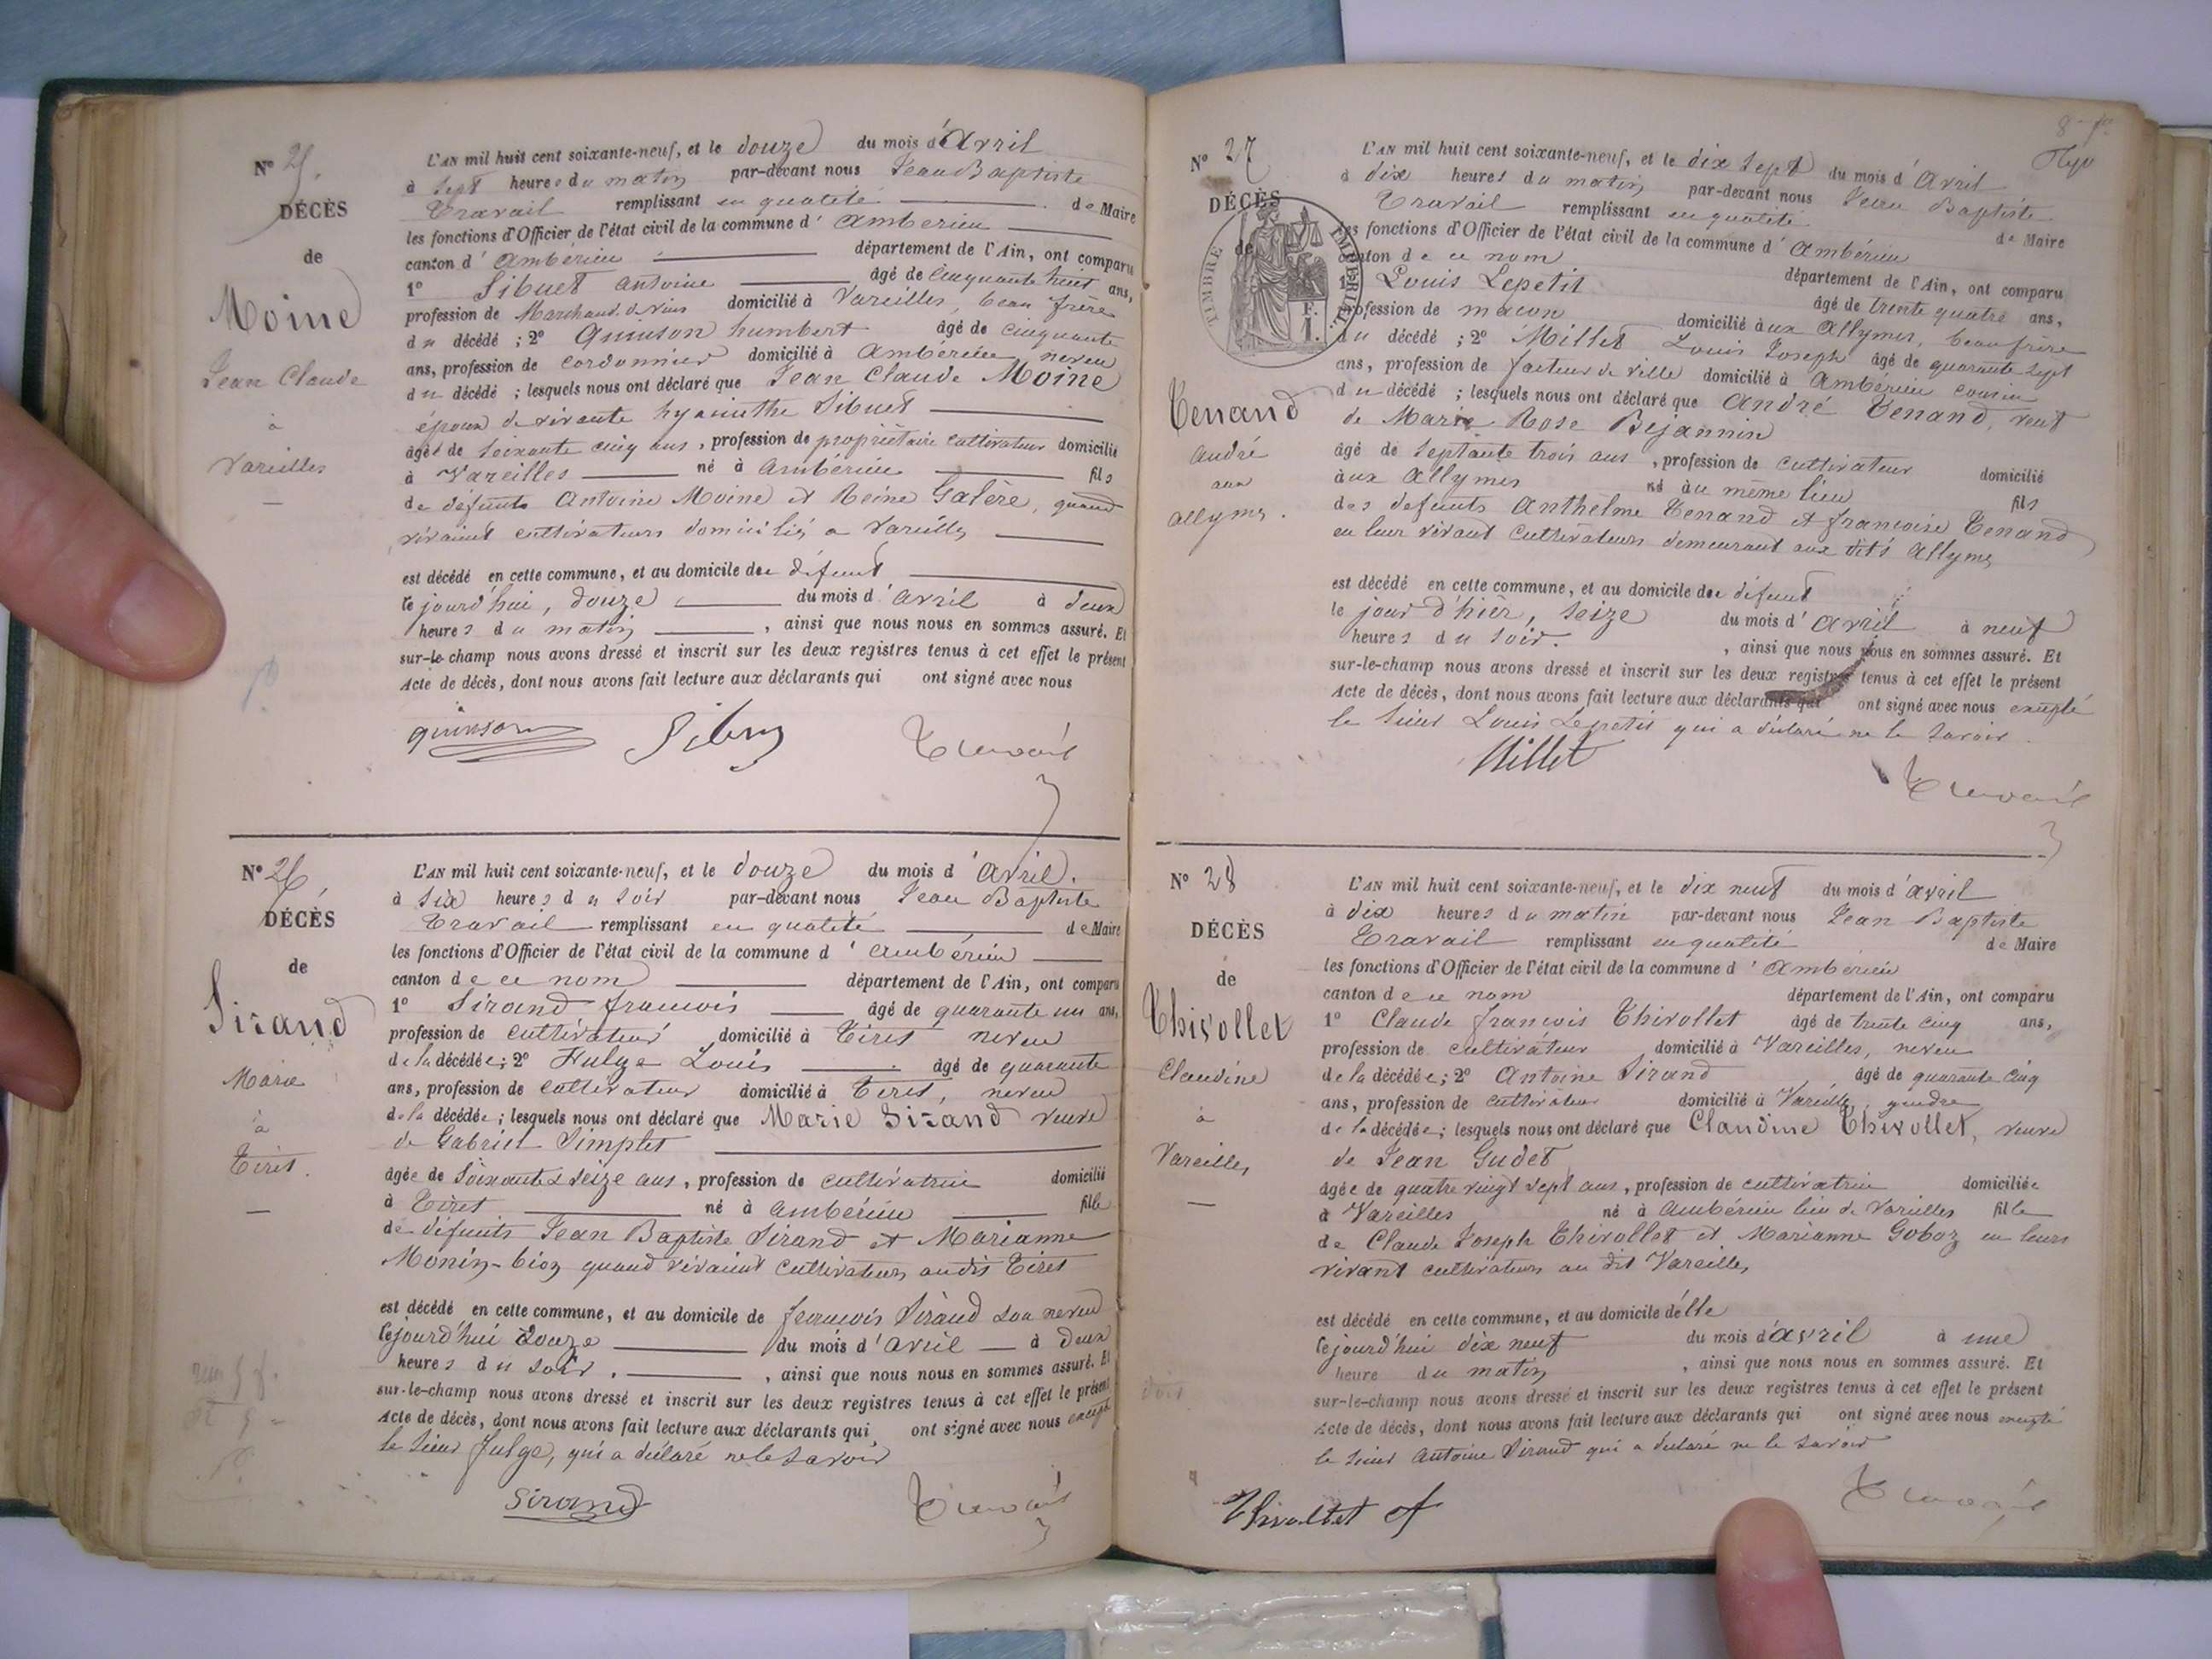 N° 25.
DÉCÈS
de
Moine
Jean Claude
à
Vareilles
L'AN mil huit cent soixante-neuf, et le douze du mois d'Avril
à sept heures du matin par-devant nous Jean Baptiste
Travail remplissant en qualité de Maire
les fonctions d'Officier de l'état civil de la commune d'Ambérieu
canton d'Ambérieu département de l'Ain, ont comparu
1° Sibuet Antoine âgé de Cinquante huit ans,
profession de Marchand de vins domicilié à Vareilles, beau frère
du décédé ; 2° Quinson humbert âgé de cinquante
ans, profession de cordonnier domicilié à Ambérieu neveu
du décédé ; lesquels nous ont déclaré que Jean Claude Moine
époux de vivante hyacinthe Sibuet
âgé de Soixante cinq ans, profession de propriétaire cultivateur domicilié
à Vareilles né à Ambérieu fils
de défunts Antoine Moine et Reine Galère, quand
vivaient cultivateurs domiciliés a Vareilles
est décédé en cette commune, et au domicile du défunt
le jourd'hui, douze du mois d'avril à deux
heures du matin, ainsi que nous nous en sommes assuré. Et
sur-le-champ nous avons dressé et inscrit sur les deux registres tenus à cet effet le présent
Acte de décès, dont nous avons fait lecture aux déclarants qui ont signé avec nous
quinson Sibuet Travail
N° 26
DÉCÈS
de
Sirand
Marie
à
Tiret.
L'AN mil huit cent soixante-neuf, et le douze du mois d'Avril.
à six heures du soir par-devant nous Jean Baptiste
Travail remplissant en qualité de Maire
les fonctions d'Officier de l'état civil de la commune d'Ambérieu
canton de ce nom département de l'Ain, ont comparu
1° Sirand françois âgé de quarante un ans,
profession de cultivateur domicilié à Tiret neveu
de la décédée; 2° Fulge Louis âgé de quarante
ans, profession de cultivateur domicilié à Tiret, neveu
de la décédée ; lesquels nous ont déclaré que Marie Sirand veuve
de Gabriel Simplet
âgée de Soixante & seize ans, profession de cultivatrice domicilié
à Tiret né à Ambérieu fille
de défunts Jean Baptiste Sirand et Marianne
Monin-bion quand vivaient cultivateurs audit Tiret
est décédé en cette commune, et au domicile de françois Sirand son neveu
le jourd'hui douze du mois d'avril à deux
heures du soir, ainsi que nous nous en sommes assuré. Et
sur-le-champ nous avons dressé et inscrit sur les deux registres tenus à cet effet le présent
Acte de décès, dont nous avons fait lecture aux déclarants qui ont signé avec nous excepté
le Sieur Fulge, qui a déclaré ne le savoir
Sirand Travail
N° 27
DÉCÈS
de
TIMBRE IMPERIAL
1 F.
Tenand
André
aux
allymes.
L'AN mil huit cent soixante-neuf, et le dix sept du mois d'Avril
à dix heures du matin par-devant nous Jean Baptiste
Travail remplissant en qualité de Maire
les fonctions d'Officier de l'état civil de la commune d'Ambérieu
canton de ce nom département de l'Ain, ont comparu
1° Louis Lepetit âgé de trente quatre ans,
profession de maçon domicilié aux Allymes, beau frère
du décédé ; 2° Millet Louis Joseph âgé de quarante sept
ans, profession de facteur de ville domicilié à Ambérieu cousin
du décédé ; lesquels nous ont déclaré que André Tenand, veuf
de Marie Rose Bejannin
âgé de septante trois ans, profession de cultivateur domicilié
aux Allymes né au même lieu fils
des défunts Anthelme Tenand et françoise Tenand
en leur vivant cultivateurs demeurant aux dits Allymes
est décédé en cette commune, et au domicile du défunt
le jour d'hier, seize du mois d'avril à neuf
heures du soir. , ainsi que nous nous en sommes assuré. Et
sur-le-champ nous avons dressé et inscrit sur les deux registres tenus à cet effet le présent
Acte de décès, dont nous avons fait lecture aux déclarants qui ont signé avec nous excepté
le Sieur Louis Lepetit qui a déclaré ne le savoir.
Millet Travail
N° 28
DÉCÈS
de
Thivollet
Claudine
à
Vareilles
L'AN mil huit cent soixante-neuf, et le dix neuf du mois d'avril
à dix heures du matin par-devant nous Jean Baptiste
Travail remplissant en qualité de Maire
les fonctions d'Officier de l'état civil de la commune d'Ambérieu
canton de ce nom département de l'Ain, ont comparu
1° Claude françois Thivollet âgé de trente cinq ans,
profession de cultivateur domicilié à Vareilles, neveu
de la décédée; 2° Antoine Sirand âgé de quarante cinq
ans, profession de cultivateur domicilié à Vareilles, gendre
de la décédée; lesquels nous ont déclaré que Claudine Thivollet, veuve
de Jean Gudet
âgée de quatre vingt sept ans, profession de cultivatrice domiciliée
à Vareilles né à Ambérieu lieu de Vareilles fille
de Claude Joseph Thivollet et Marianne Goboz en leurs
vivant cultivateurs au dit Vareilles
est décédé en cette commune, et au domicile d'elle
le jourd'hui dix neuf du mois d'avril à une
heure du matin, ainsi que nous nous en sommes assuré. Et
sur-le-champ nous avons dressé et inscrit sur les deux registres tenus à cet effet le présent
Acte de décès, dont nous avons fait lecture aux déclarants qui ont signé avec nous excepté
le Sieur Antoine Sirand qui a déclaré ne le savoir
Thivollet cf Travail